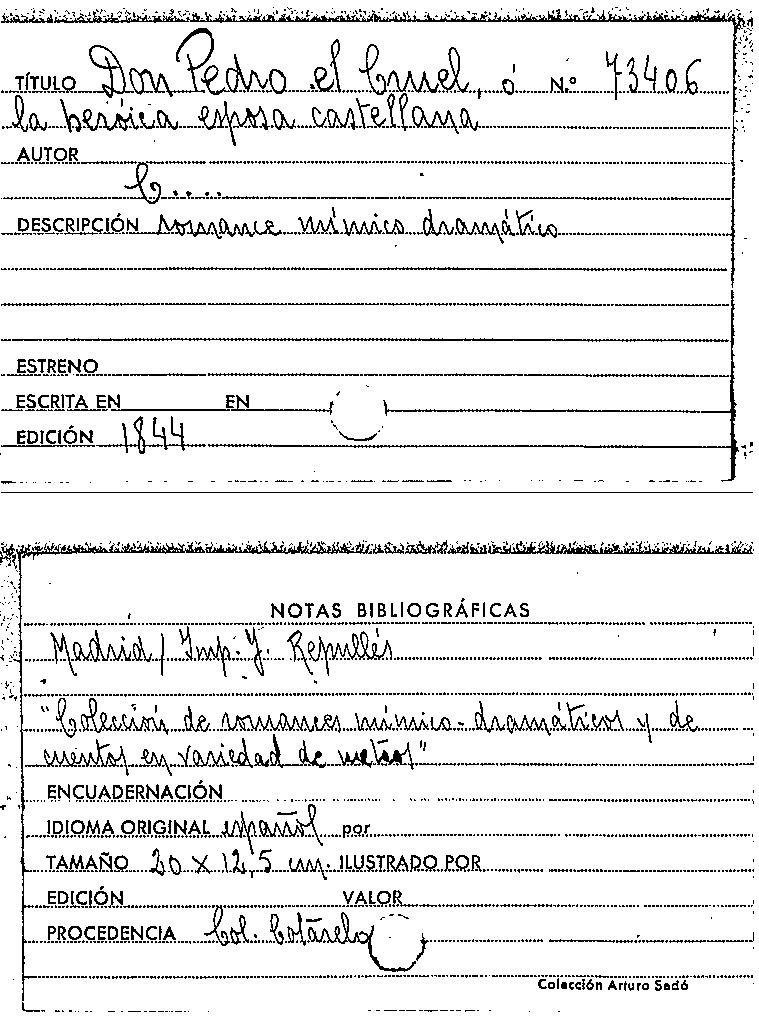 TÍTULO Don Pedro el Cruel, ó N.º 73406
la heróica esposa castellana
AUTOR
C....
DESCRIPCIÓN romance mímico dramático
ESTRENO
ESCRITA EN EN
EDICIÓN 1844
NOTAS BIBLIOGRÁFICAS
Madrid / Imp. J. Repullés
"Colección de romances mímico-dramáticos y de
cuentos en variedad de metros"
ENCUADERNACIÓN
IDIOMA ORIGINAL español por
TAMAÑO 20 x 12,5 cm. ILUSTRADO POR
EDICIÓN VALOR
PROCEDENCIA Col. Cotarelo
Colección Arturo Sedó